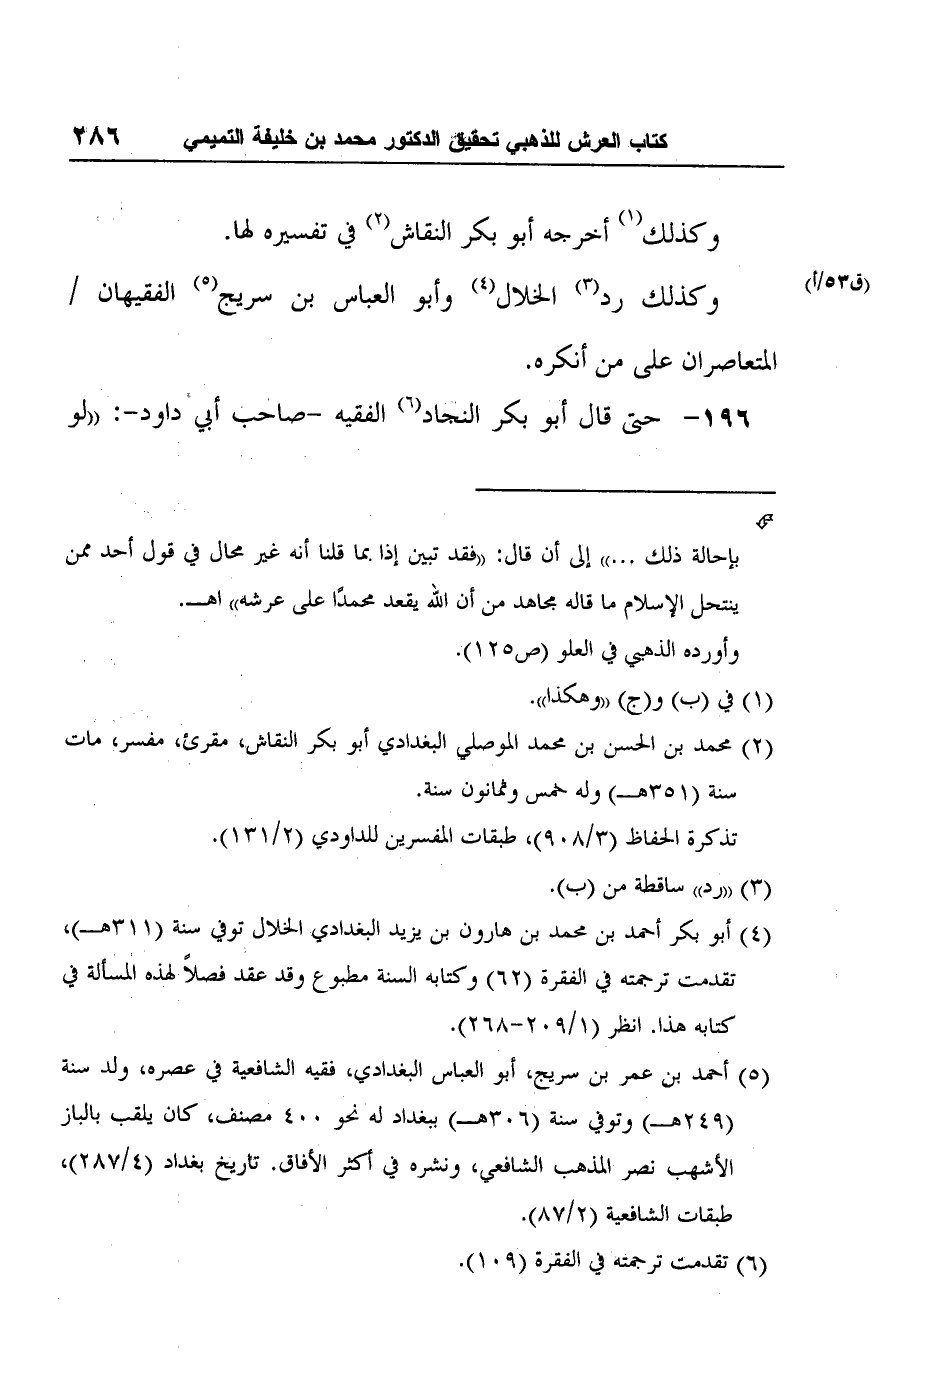 كتاب العرش للذهبي تحقيق الدكتور محمد بن خليفة التميمي ٢٨٦
وكذلك(١) أخرجه أبو بكر النقاش(٢) في تفسيره لها.
(ق٥٣/أ)
وكذلك رد(٣) الخلال(٤) وأبو العباس بن سريج(٥) الفقيهان /
المتعاصران على من أنكره.
١٩٦- حتى قال أبو بكر النجاد(٦) الفقيه -صاحب أبي داود-: «لو
بإحالة ذلك ...» إلى أن قال: «فقد تبين إذا بما قلنا أنه غير محال في قول أحد ممن
ينتحل الإسلام ما قاله مجاهد من أن الله يقعد محمدًا على عرشه» اهـ.
وأورده الذهبي في العلو (ص١٢٥).
(١) في (ب) و(ج) «وهكذا».
(٢) محمد بن الحسن بن محمد الموصلي البغدادي أبو بكر النقاش، مقرئ، مفسر، مات
سنة (٣٥١هـ) وله خمس وثمانون سنة.
تذكرة الحفاظ (٩٠٨/٣)، طبقات المفسرين للداودي (١٣١/٢).
(٣) «رد» ساقطة من (ب).
(٤) أبو بكر أحمد بن محمد بن هارون بن يزيد البغدادي الخلال توفي سنة (٣١١هـ)،
تقدمت ترجمته في الفقرة (٦٢) وكتابه السنة مطبوع وقد عقد فصلاً لهذه المسألة في
كتابه هذا. انظر (٢٠٩/١-٢٦٨).
(٥) أحمد بن عمر بن سريج، أبو العباس البغدادي، فقيه الشافعية في عصره، ولد سنة
(٢٤٩هـ) وتوفي سنة (٣٠٦هـ) ببغداد له نحو ٤٠٠ مصنف، كان يلقب بالباز
الأشهب نصر المذهب الشافعي، ونشره في أكثر الأفاق. تاريخ بغداد (٢٨٧/٤)،
طبقات الشافعية (٨٧/٢).
(٦) تقدمت ترجمته في الفقرة (١٠٩).